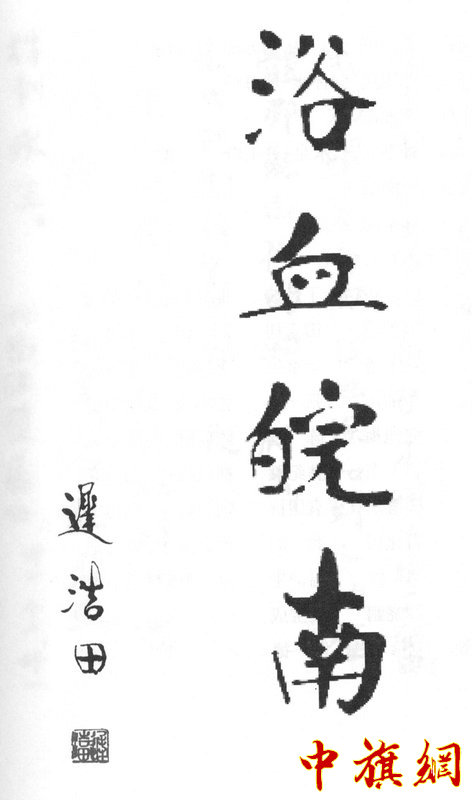 浴血皖南
遲浩田
中旗網